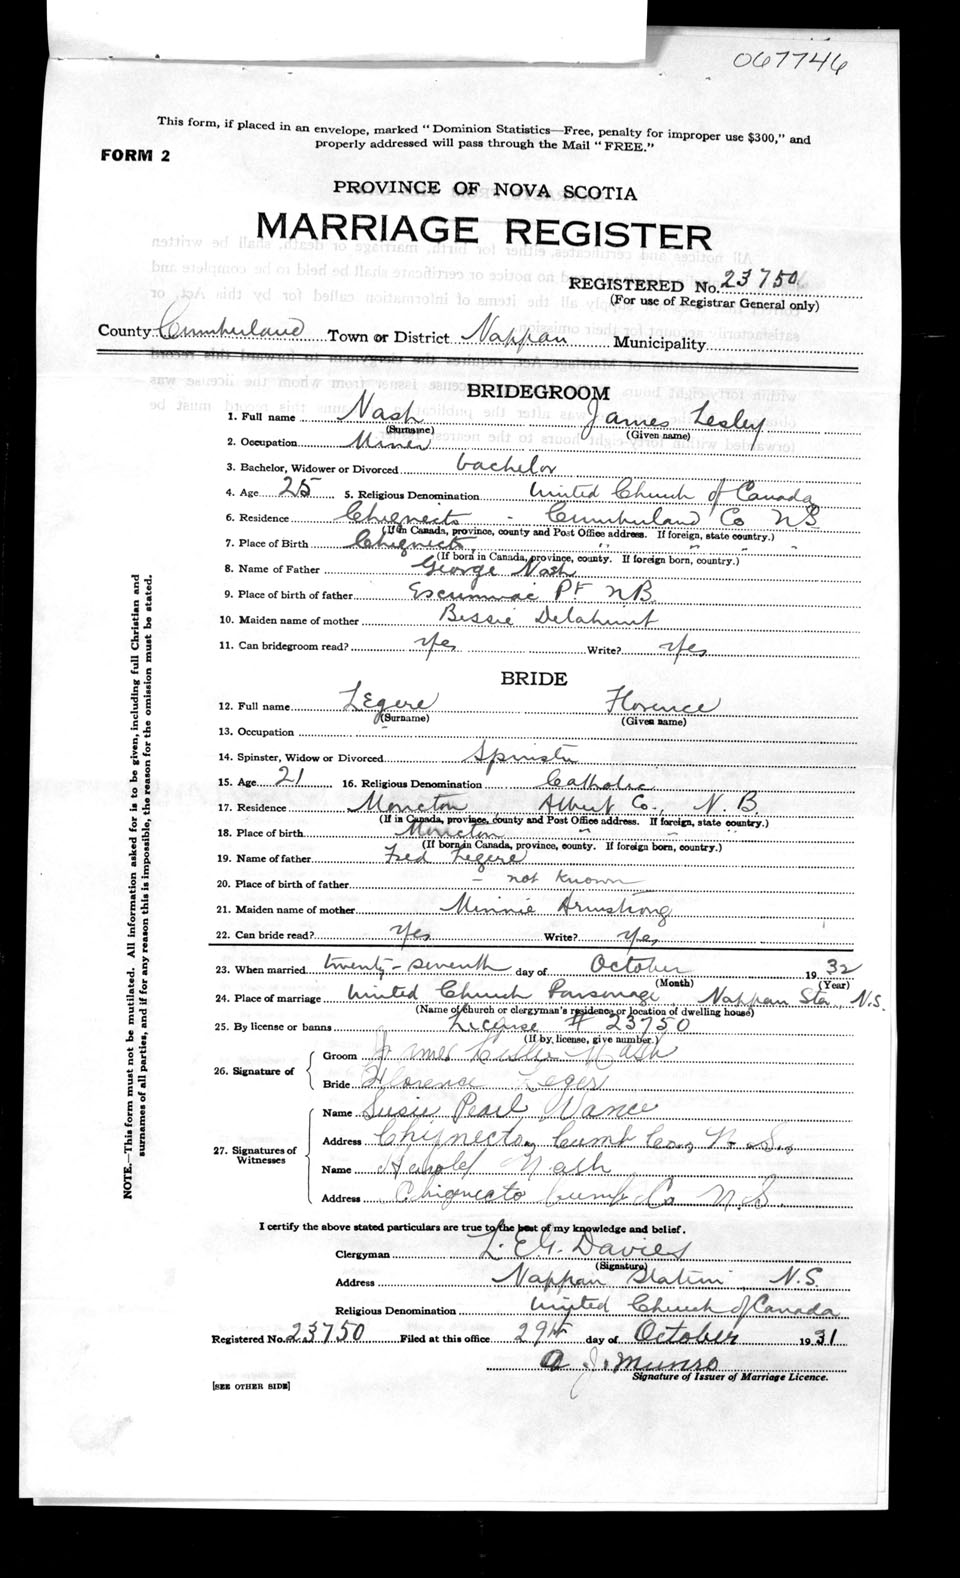 067746
This form, if placed in an envelope, marked " Dominion Statistics—Free, penalty for improper use $300," and
properly addressed will pass through the Mail " FREE."
FORM 2
PROVINCE OF NOVA SCOTIA
MARRIAGE REGISTER
REGISTERED No. 23750
(For use of Registrar General only)
County Cumberland Town or District Nappan Municipality
BRIDEGROOM
1. Full name Nash James Lesley
(Surname) (Given name)
2. Occupation Miner
3. Bachelor, Widower or Divorced bachelor
4. Age 25 5. Religious Denomination United Church of Canada
6. Residence Chignecto - Cumberland Co N.S
(If in Canada, province, county and Post Office address. If foreign, state country.)
7. Place of Birth Chignecto " " "
(If born in Canada, province, county. If foreign born, country.)
8. Name of Father George Nash
9. Place of birth of father Escuminac Pt N.B
10. Maiden name of mother Bessie Delahunt
11. Can bridegroom read? Yes Write? Yes
BRIDE
12. Full name Legere Florence
(Surname) (Given name)
13. Occupation -
14. Spinster, Widow or Divorced Spinster
15. Age 21 16. Religious Denomination Catholic
17. Residence Moncton Albert Co., N.B.
(If in Canada, province, county and Post Office address. If foreign, state country.)
18. Place of birth Moncton " " "
(If born in Canada, province, county. If foreign born, country.)
19. Name of father Fred Legere
20. Place of birth of father - not known
21. Maiden name of mother Minnie Armstrong
22. Can bride read? Yes Write? Yes
23. When married twenty-seventh day of October 1932
(Month) (Year)
24. Place of marriage United Church Parsonage, Nappan Sta, N.S.
(Name of church or clergyman's residence or location of dwelling house)
25. By license or banns License # 23750
(If by license, give number.)
26. Signature of
Groom James Leslie Nash
Bride Florence Leger
27. Signatures of Witnesses
Name Susie Pearl Vance
Address Chignecto, Cumb Co, N.S.
Name Harold Nash
Address Chignecto Cumb Co N.S.
I certify the above stated particulars are true to the best of my knowledge and belief.
Clergyman L. E. G. Davies
(Signature)
Address Nappan Station N.S.
Religious Denomination United Church of Canada
Registered No. 23750 Filed at this office 29th day of October 1931
A. J. Munro
Signature of Issuer of Marriage Licence.
[SEE OTHER SIDE]
NOTE.—This form must not be mutilated. All information asked for is to be given, including full Christian and
surnames of all parties, and if for any reason this is impossible, the reason for the omission must be stated.